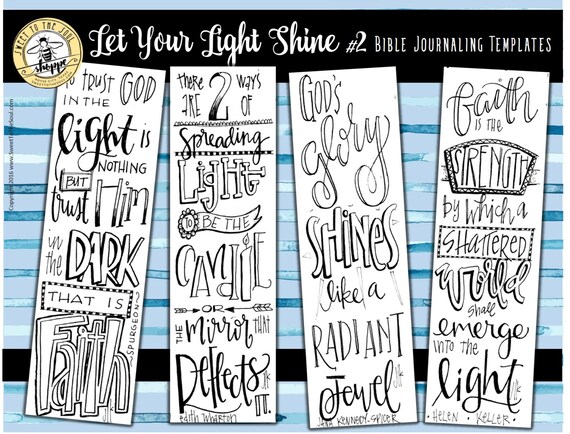 SWEET TO THE SOUL
shoppe
Let Your Light Shine #2 BIBLE JOURNALING TEMPLATES
Copyright 2016 www.SweetToTheSoul.com
TO TRUST GOD
IN THE
light is
NOTHING
BUT
trust Him
in the
DARK
THAT IS
Faith
SPURGEON
there 2 WAYS
ARE OF
Spreading
LIGHT
TO BE THE
CANDLE
OR
THE Mirror THAT
Reflects
IT.
Edith Wharton
GOD'S
glory
SHINES
like a
RADIANT
Jewel
JANA KENNEDY-SPICER
faith
IS THE
STRENGTH
by which a
SHATTERED
world
shall
emerge
INTO THE
light
HELEN KELLER